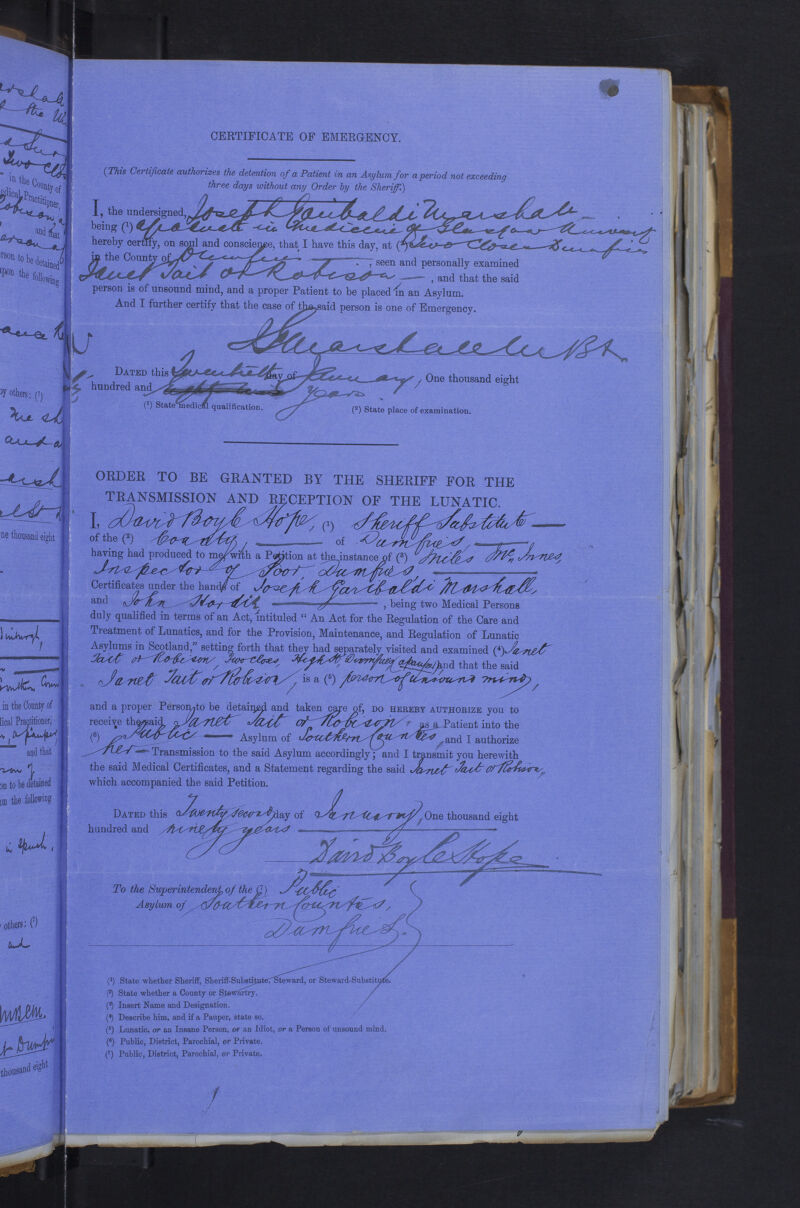 CERTIFICATE OF EMERGENCY.
(This Certificate authorizes the detention of a Patient in an Asylum for a period not exceeding
three days without any Order by the Sheriff.)
I, the undersigned, Joseph Garibaldi Marshall
being (¹) a graduate in medicine of Glasgow University
hereby certify, on soul and conscience, that I have this day, at (²) two Closes Dumfries
in the County of Dumfries, seen and personally examined
Janet Tait or Robison, and that the said
person is of unsound mind, and a proper Patient to be placed in an Asylum.
And I further certify that the case of the said person is one of Emergency.
JGMarshall M.B.
DATED this Twentieth day of January, One thousand eight
hundred and years
(¹) State medical qualification. (²) State place of examination.
ORDER TO BE GRANTED BY THE SHERIFF FOR THE
TRANSMISSION AND RECEPTION OF THE LUNATIC.
I, David Boyle Hope, (¹) Sheriff Substitute
of the (²) County, of Dumfries,
having had produced to me, with a Petition at the instance of (³) Miles McInnes,
Inspector of Poor Dumfries,
Certificates under the hands of Joseph Garibaldi Marshall,
and John, being two Medical Persons
duly qualified in terms of an Act, intituled "An Act for the Regulation of the Care and
Treatment of Lunatics, and for the Provision, Maintenance, and Regulation of Lunatic
Asylums in Scotland," setting forth that they had separately visited and examined (⁴) Janet
Tait or Robison, Two Closes, High St, Dumfries a pauper, and that the said
Janet Tait or Robison, is a (⁵) person of unsound mind,
and a proper Person to be detained and taken care of, DO HEREBY AUTHORIZE you to
receive the said Janet Tait or Robison, as a Patient into the
(⁶) Public Asylum of Southern Counties, and I authorize
her Transmission to the said Asylum accordingly; and I transmit you herewith
the said Medical Certificates, and a Statement regarding the said Janet Tait or Robison,
which accompanied the said Petition.
DATED this Twenty second day of January, One thousand eight
hundred and ninety years
David Boyle Hope
To the Superintendent of the (⁷) Public
Asylum of Southern Counties,
Dumfries.
(¹) State whether Sheriff, Sheriff-Substitute, Steward, or Steward-Substitute.
(²) State whether a County or Stewartry.
(³) Insert Name and Designation.
(⁴) Describe him, and if a Pauper, state so.
(⁵) Lunatic, or an Insane Person, or an Idiot, or a Person of unsound mind.
(⁶) Public, District, Parochial, or Private.
(⁷) Public, District, Parochial, or Private.